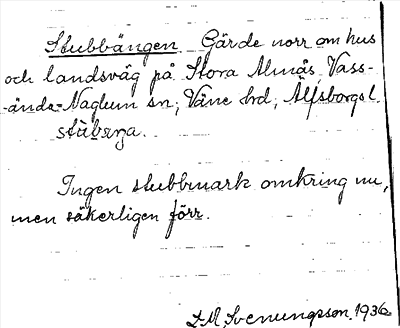 Stubbängen. Gärde norr om hus
och landsväg på Stora Almås, Vass-
-ända-Naglum sn; Väne hrd; Älfsborgs l.
stùbæŋa.
Ingen stubbmark omkring nu,
men säkerligen förr.
Svenungsson, 1936